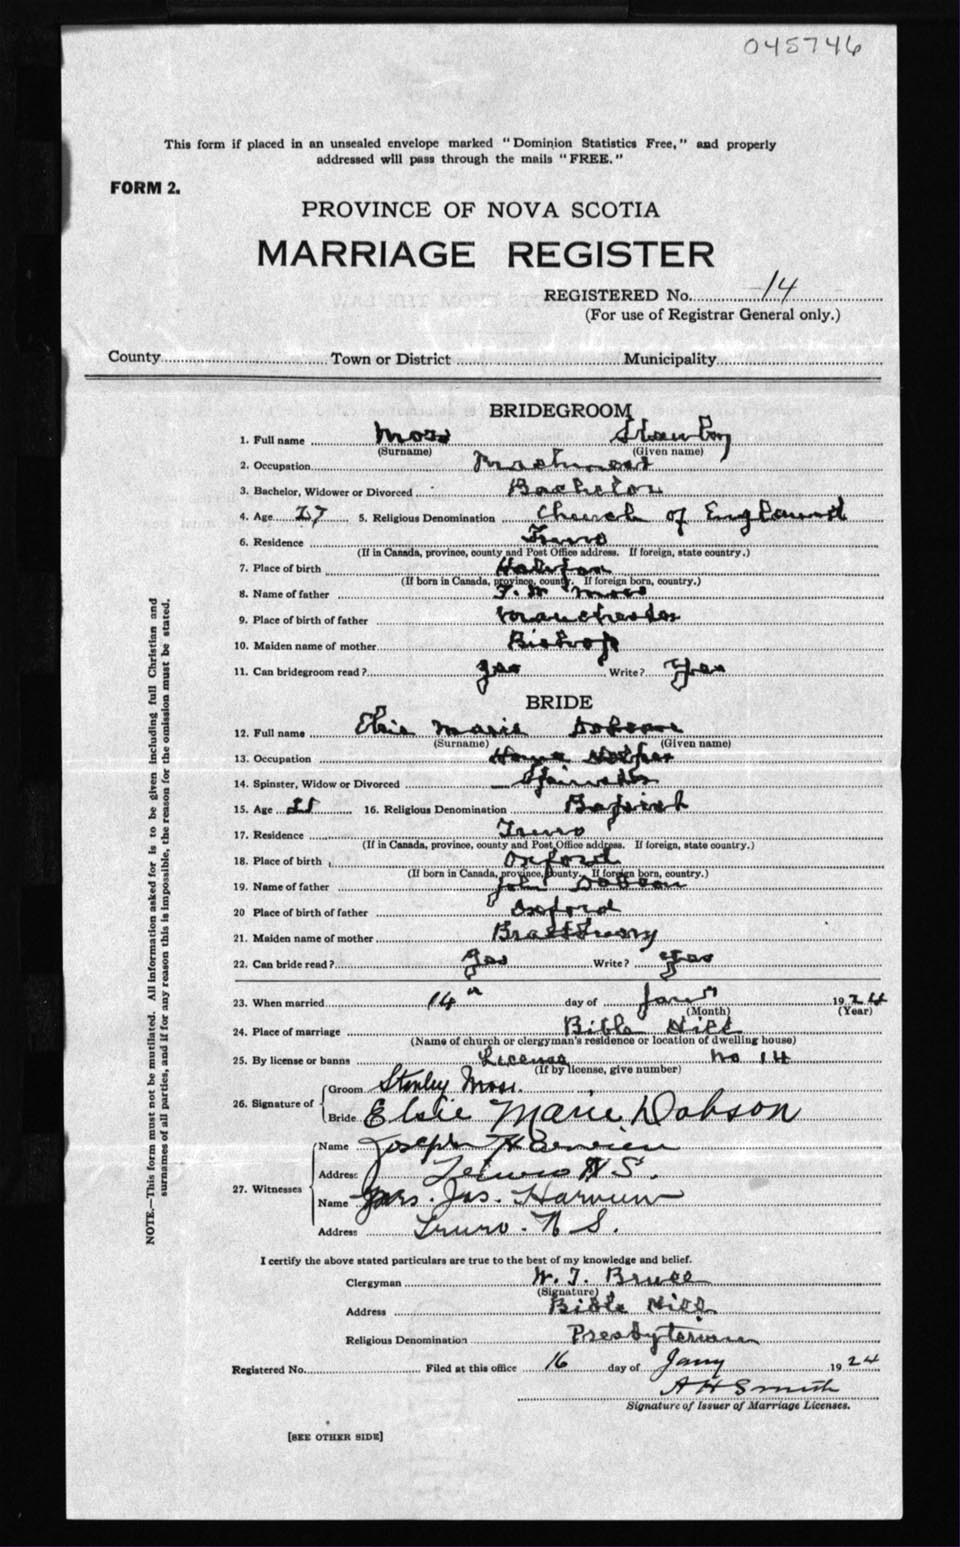 045746
This form if placed in an unsealed envelope marked "Dominion Statistics Free," and properly
addressed will pass through the mails "FREE."
FORM 2.
PROVINCE OF NOVA SCOTIA
MARRIAGE REGISTER
REGISTERED No. 14
(For use of Registrar General only.)
County Town or District Municipality
BRIDEGROOM
1. Full name Moss Stanley
(Surname) (Given name)
2. Occupation
3. Bachelor, Widower or Divorced Bachelor
4. Age 27 5. Religious Denomination Church of England
6. Residence Truro
(If in Canada, province, county and Post Office address. If foreign, state country.)
7. Place of birth Halifax
(If born in Canada, province, county. If foreign born, country.)
8. Name of father F. W Moss
9. Place of birth of father Manchester
10. Maiden name of mother Bishop
11. Can bridegroom read? Yes Write? Yes
BRIDE
12. Full name Elsie Marie Dobson
(Surname) (Given name)
13. Occupation Home
14. Spinster, Widow or Divorced Spinster
15. Age 21 16. Religious Denomination Baptist
17. Residence Truro
(If in Canada, province, county and Post Office address. If foreign, state country.)
18. Place of birth Oxford
(If born in Canada, province, county. If foreign born, country.)
19. Name of father John Dobson
20 Place of birth of father Oxford
21. Maiden name of mother
22. Can bride read? Yes Write? Yes
23. When married 14th day of Jany 1924
(Month) (Year)
24. Place of marriage Bible Hill
(Name of church or clergyman's residence or location of dwelling house)
25. By license or banns License No 14
(If by license, give number)
26. Signature of
Groom Stanley Moss.
Bride Elsie Marie Dobson
27. Witnesses
Name Joseph H
Address Truro N S.
Name Mrs. Jas. Harvieu
Address Truro. N S.
I certify the above stated particulars are true to the best of my knowledge and belief.
Clergyman W. T. Bruce
(Signature)
Address Bible Hill
Religious Denomination Presbyterian
Registered No. Filed at this office 16 day of Jany 1924
A H Smith
Signature of Issuer of Marriage Licenses.
[SEE OTHER SIDE]
NOTE.—This form must not be mutilated. All information asked for is to be given including full Christian and
surnames of all parties, and if for any reason this is impossible, the reason for the omission must be stated.